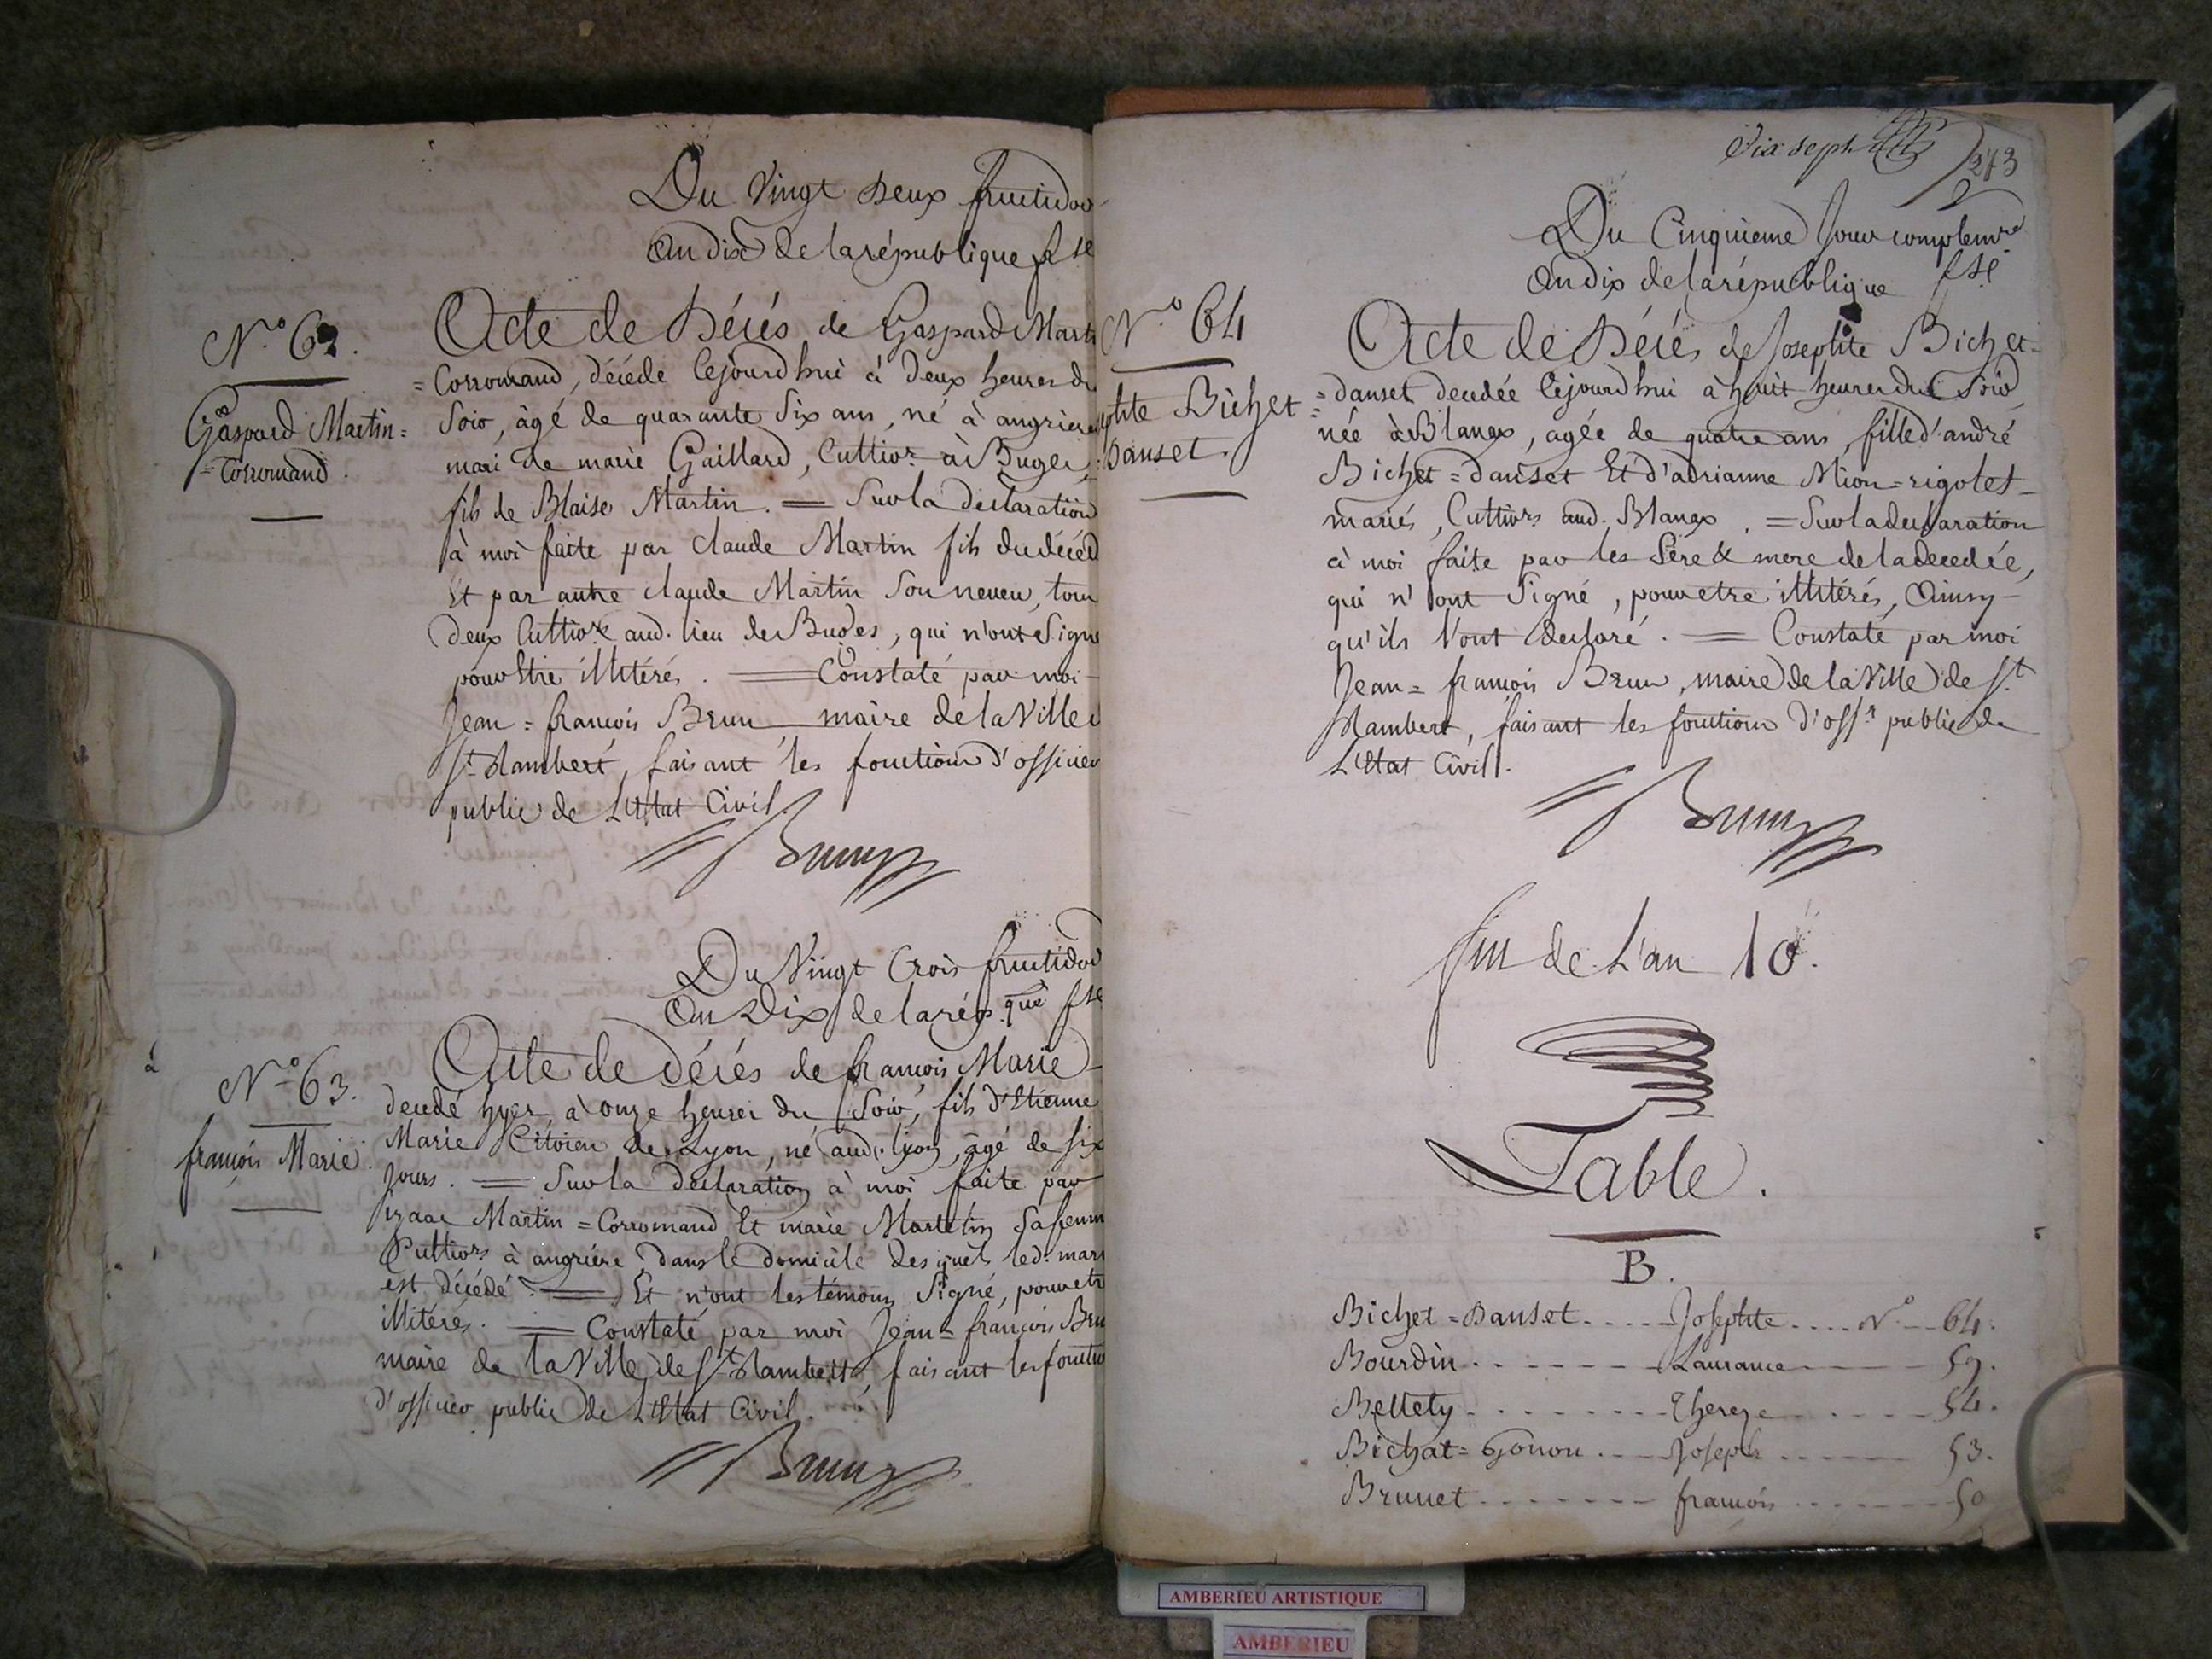 Du Vingt Deux fructidor
An dix de la république fse
N.o 62.
Gaspard Martin=
=Corromand.
Acte de Décés de Gaspard Marti
=Corromand, décédé cejourdhui à deux heures du
Soir, âgé de quarante Six ans, né à angrieres
mari de marie Gaillard, Cultivr. à Buges,
fils de Blaise Martin. = Sur la declaration
à moi faite par Claude Martin fils du décéd
Et par autre claude Martin Son neveu, tous
deux Cultivrs aud. lieu de Buges, qui n'ont Signé
pour Etre illitérés. = Constaté par moi
Jean=françois Brun maire de la Ville d
St. Rambert, faisant les fonctions d'officier
public de L'Etat Civil
Brun
Du Vingt trois fructidor
An Dix de la rép.que fse
N.o 63.
françois Marie
Acte de Décés de françois Marie
decedé hyer à onze heures du Soir, fils d'Etienne
Marie Citoien de Lyon, né aud. lyon, âgé de six
Jours. = Sur la declaration à moi faite par
Izaac Martin=Corromand Et marie Martelin Sa femme
Cultivrs à angriere, dans le domicile desquels led. mari
est décédé = Et n'ont les témoins Signé, pour etr
illitérés. = Constaté par moi Jean=françois Bru
maire de la Ville de St. Rambert, faisant les fonctio
d'officier public de L'Etat Civil.
Brun
Dix sept
273
Du Cinquieme Jour complemre
An dix de la république fse
N.o 64
phte Bichet=
Danset.
Acte de Décés de Josephte Bichet=
=danset decedée cejourdhui à huit heures du Soir
née à Blanax, agée de quatre ans, fille d'andré
Bichet=danset Et d'adrianne Mion=rigolet
mariés, Cultivrs aud. Blanax. = Sur la declaration
à moi faite par les Père & mere de la decedée,
qui n'ont Signé, pour etre illitérés, Ainsy
qu'ils l'ont declaré. = Constaté par moi
Jean=françois Brun, maire de la Ville de St
Rambert, faisant les fonctions d'offr. public de
L'Etat Civil.
Brun
fin de L'an 10.
Table.
B.
Bichet=Danset....Josephte....No 64.
Bourdin.......Laurance 59.
Bellety.......Thereze....54.
Bichat=Gonon...Joseph......53.
Brunet.......françois.......50
AMBERIEU ARTISTIQUE
AMBERIEU